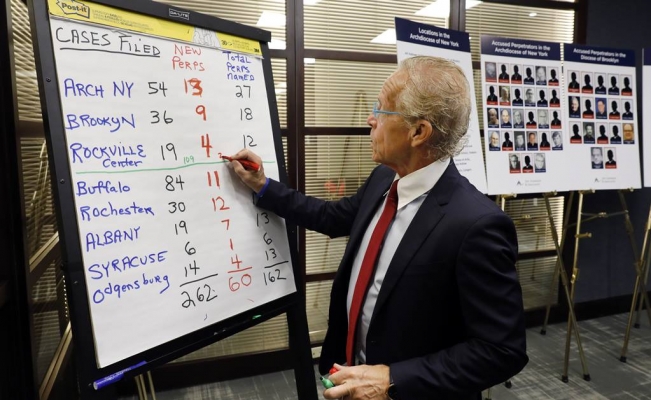 Post-it
CASES FILED NEW PERPS TOTAL PERPS NAMED
ARCH NY 54 13 27
BROOKYN 36 9 18
ROCKVILLE CENTER 19 109 4 12
Buffalo 84 11
Rochester 30 12
ALBANY 19 7 13
SYRACUSE 6 1 6
Odgensburg 14 4 13
262 60 162
Locations in the
Archdiocese of New York
Accused Perpetrators in the
Archdiocese of New York
Accused Perpetrators in the
Diocese of Brooklyn